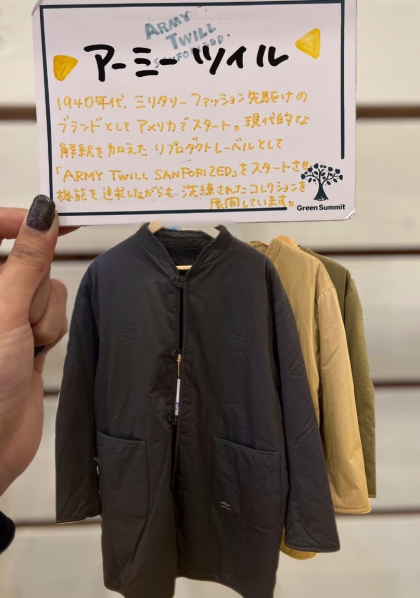 ARMY
TWILL
SANFORIZED.
アーミーツイル
1940年代、ミリタリーファッション先駆けの
ブランドとしてアメリカでスタート。現代的な
解釈を加えたリプロダクトレーベルとして
「ARMY TWILL SANFORIZED」をスタートさせ
機能を追求しながらも洗練されたコレクションを
展開しています。
Green Summit